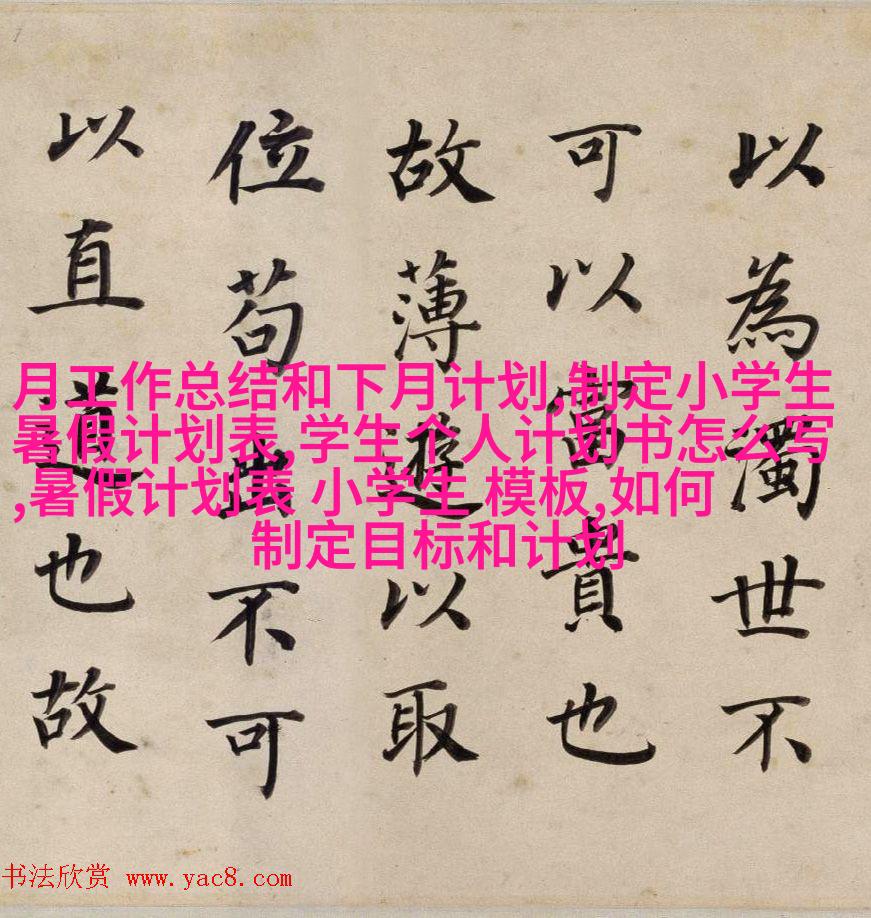 以為濁世不
可以富貴也
故薄遊以取
位苟出不可
以直道也故
月工作总结和下月计划,制定小学生
暑假计划表,学生个人计划书怎么写
,暑假计划表 小学生 模板,如何
制定目标和计划
书法欣赏 www.yac8.com